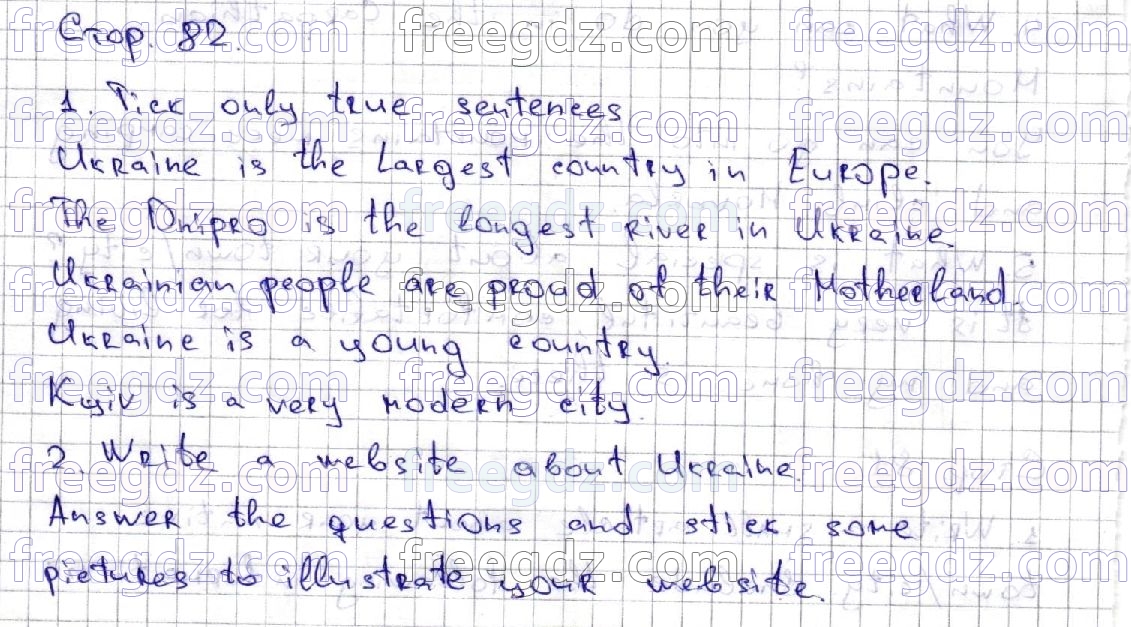 Стор. 82.
1. Tick only true sentences
Ukraine is the largest country in Europe.
The Dnipro is the longest river in Ukraine.
Ukrainian people are proud of their Motherland.
Ukraine is a young country.
Kyiv is a very modern city.
2. Write a website about Ukraine.
Answer the questions and stick some
pictures to illustrate your website.
freegdz.com freegdz.com freegdz.com